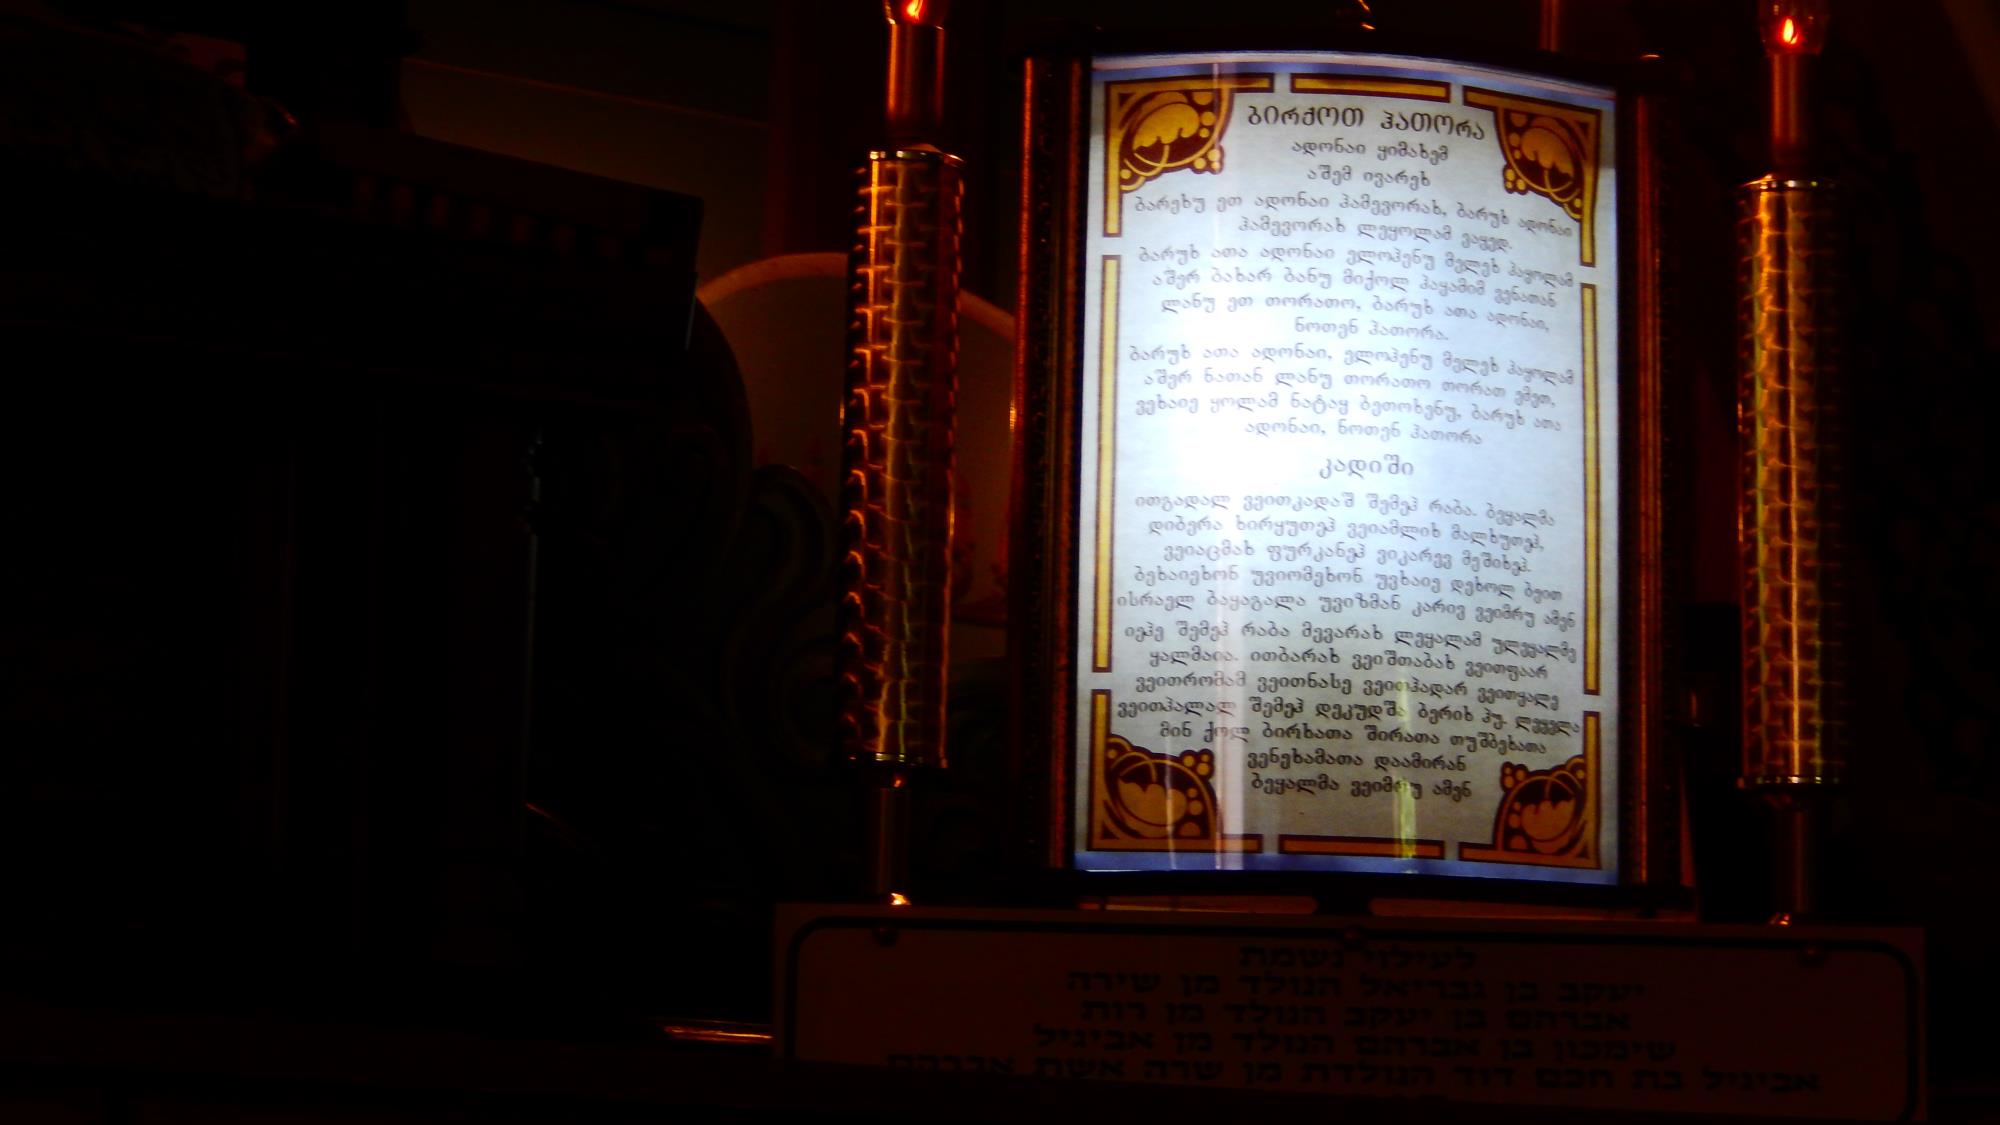 ბირქოთ ჰათორა
ადონაი ყიმახემ
აშემ ივარეხ
ბარეხუ ეთ ადონაი ჰამევორახ, ბარუხ ადონაი
ჰამევორახ ლეყოლამ ვაყედ.
ბარუხ ათა ადონაი ელოჰენუ მელეხ ჰაყოლამ
აშერ ბახარ ბანუ მიქოლ ჰაყამიმ ვენათან
ლანუ ეთ თორათო, ბარუხ ათა ადონაი,
ნოთენ ჰათორა.
ბარუხ ათა ადონაი, ელოჰენუ მელეხ ჰაყოლამ
აშერ ნათან ლანუ თორათო თორათ ემეთ,
ვეხაიე ყოლამ ნატაყ ბეთოხენუ, ბარუხ ათა
ადონაი, ნოთენ ჰათორა
კადიში
ითგადალ ვეითკადაშ შემეჰ რაბა. ბეყალმა
დიბერა ხირყუთეჰ ვეიამლიხ მალხუთეჰ,
ვეიაცმახ ფურკანეჰ ვიკარევ მეშიხეჰ.
ბეხაიეხონ უვიომეხონ უვხაიე დეხოლ ბეით
ისრაელ ბაყაგალა უვიზმან კარივ ვეიმრუ ამენ
იეჰე შემეჰ რაბა მევარახ ლეყალამ ულეყალმე
ყალმაია. ითბარახ ვეიშთაბახ ვეითფაარ
ვეითრომამ ვეითნასე ვეითჰადარ ვეითყალე
ვეითჰალალ შემეჰ დეკუდშა ბერიხ ჰუ. ლეყელა
მინ ქოლ ბირხათა შირათა თუშბეხათა
ვენეხამათა დაამირან
ბეყალმა ვეიმრუ ამენ
לעילוי נשמת
יעקב בן גבריאל הנולד מן שירה
אברהם בן יעקב הנולד מן רות
שימכון בן אברהם הנולד מן אביגיל
אביגיל בת חכם דוד הנולדת מן שרה אשת אברהם